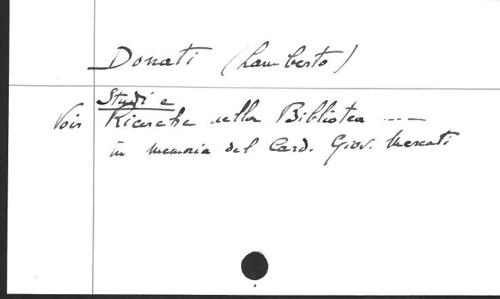 Donati (Lamberto)
Studi e
Voir Ricerche nella Biblioteca ---
in memoria del Card. Giov. Mercati